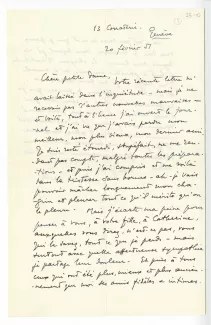 13 Corraterie.
Genève
20 février 51
Chère petite Dame,
Votre récente lettre m'
avait laissé dans l'inquiétude – mais je ne
recevais pas d'autres nouvelles mauvaises –
et voilà, tout à l'heure j'ai ouvert le jour-
nal et j'ai vu que j'avais perdu mon
meilleur, mon plus vieux, mon dernier ami.
Je suis resté étourdi, stupéfait, ne me ren-
dant pas compte, malgré toutes les prépara-
tions – et puis j'ai compris et me voilà
dans la tristesse sans bornes – ah! je vais
pouvoir mâcher longuement mon cha-
grin et pleurer tout ce qu'il mérite qu'on
le pleure. Mais j'écarte ma peine pour
penser à vous, à votre fille, à Catherine,
auxquelles vous direz, n'est-ce pas, vous
qui le savez, tout ce que je perds – mais
surtout avec quelle affectueuse sympathie
je partage leur douleur. Et puis à tous
ceux qui ont été plus, mieux et plus ancien-
nement que moi des amis fidèles et intimes.